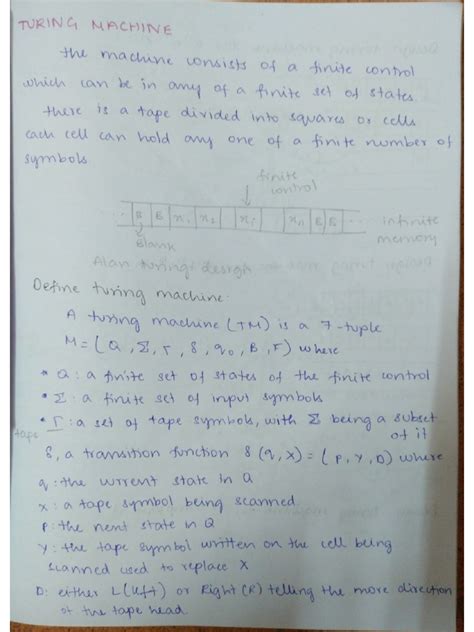 TURING MACHINE
the machine consists of a finite control
which can be in any of a finite set of states.
there is a tape divided into squares or cells
each cell can hold any one of a finite number of
symbols
finite
control
... B B x1 x2 xi xn B B ... infinite
memory
Blank
Alan turing: design
Define turing machine:
A turing machine (TM) is a 7-tuple
M = (Q, Σ, Γ, δ, q0, B, F) where
• Q: a finite set of states of the finite control
• Σ: a finite set of input symbols
• Γ: a set of tape symbols, with Σ being a subset
tape of it
δ, a transition function δ(q, x) = (P, Y, D) where
q: the current state in Q
x: a tape symbol being scanned
P: the next state in Q
Y: the tape symbol written on the cell being
scanned used to replace X
D: either L(left) or Right (R) telling the move direction
of the tape head.